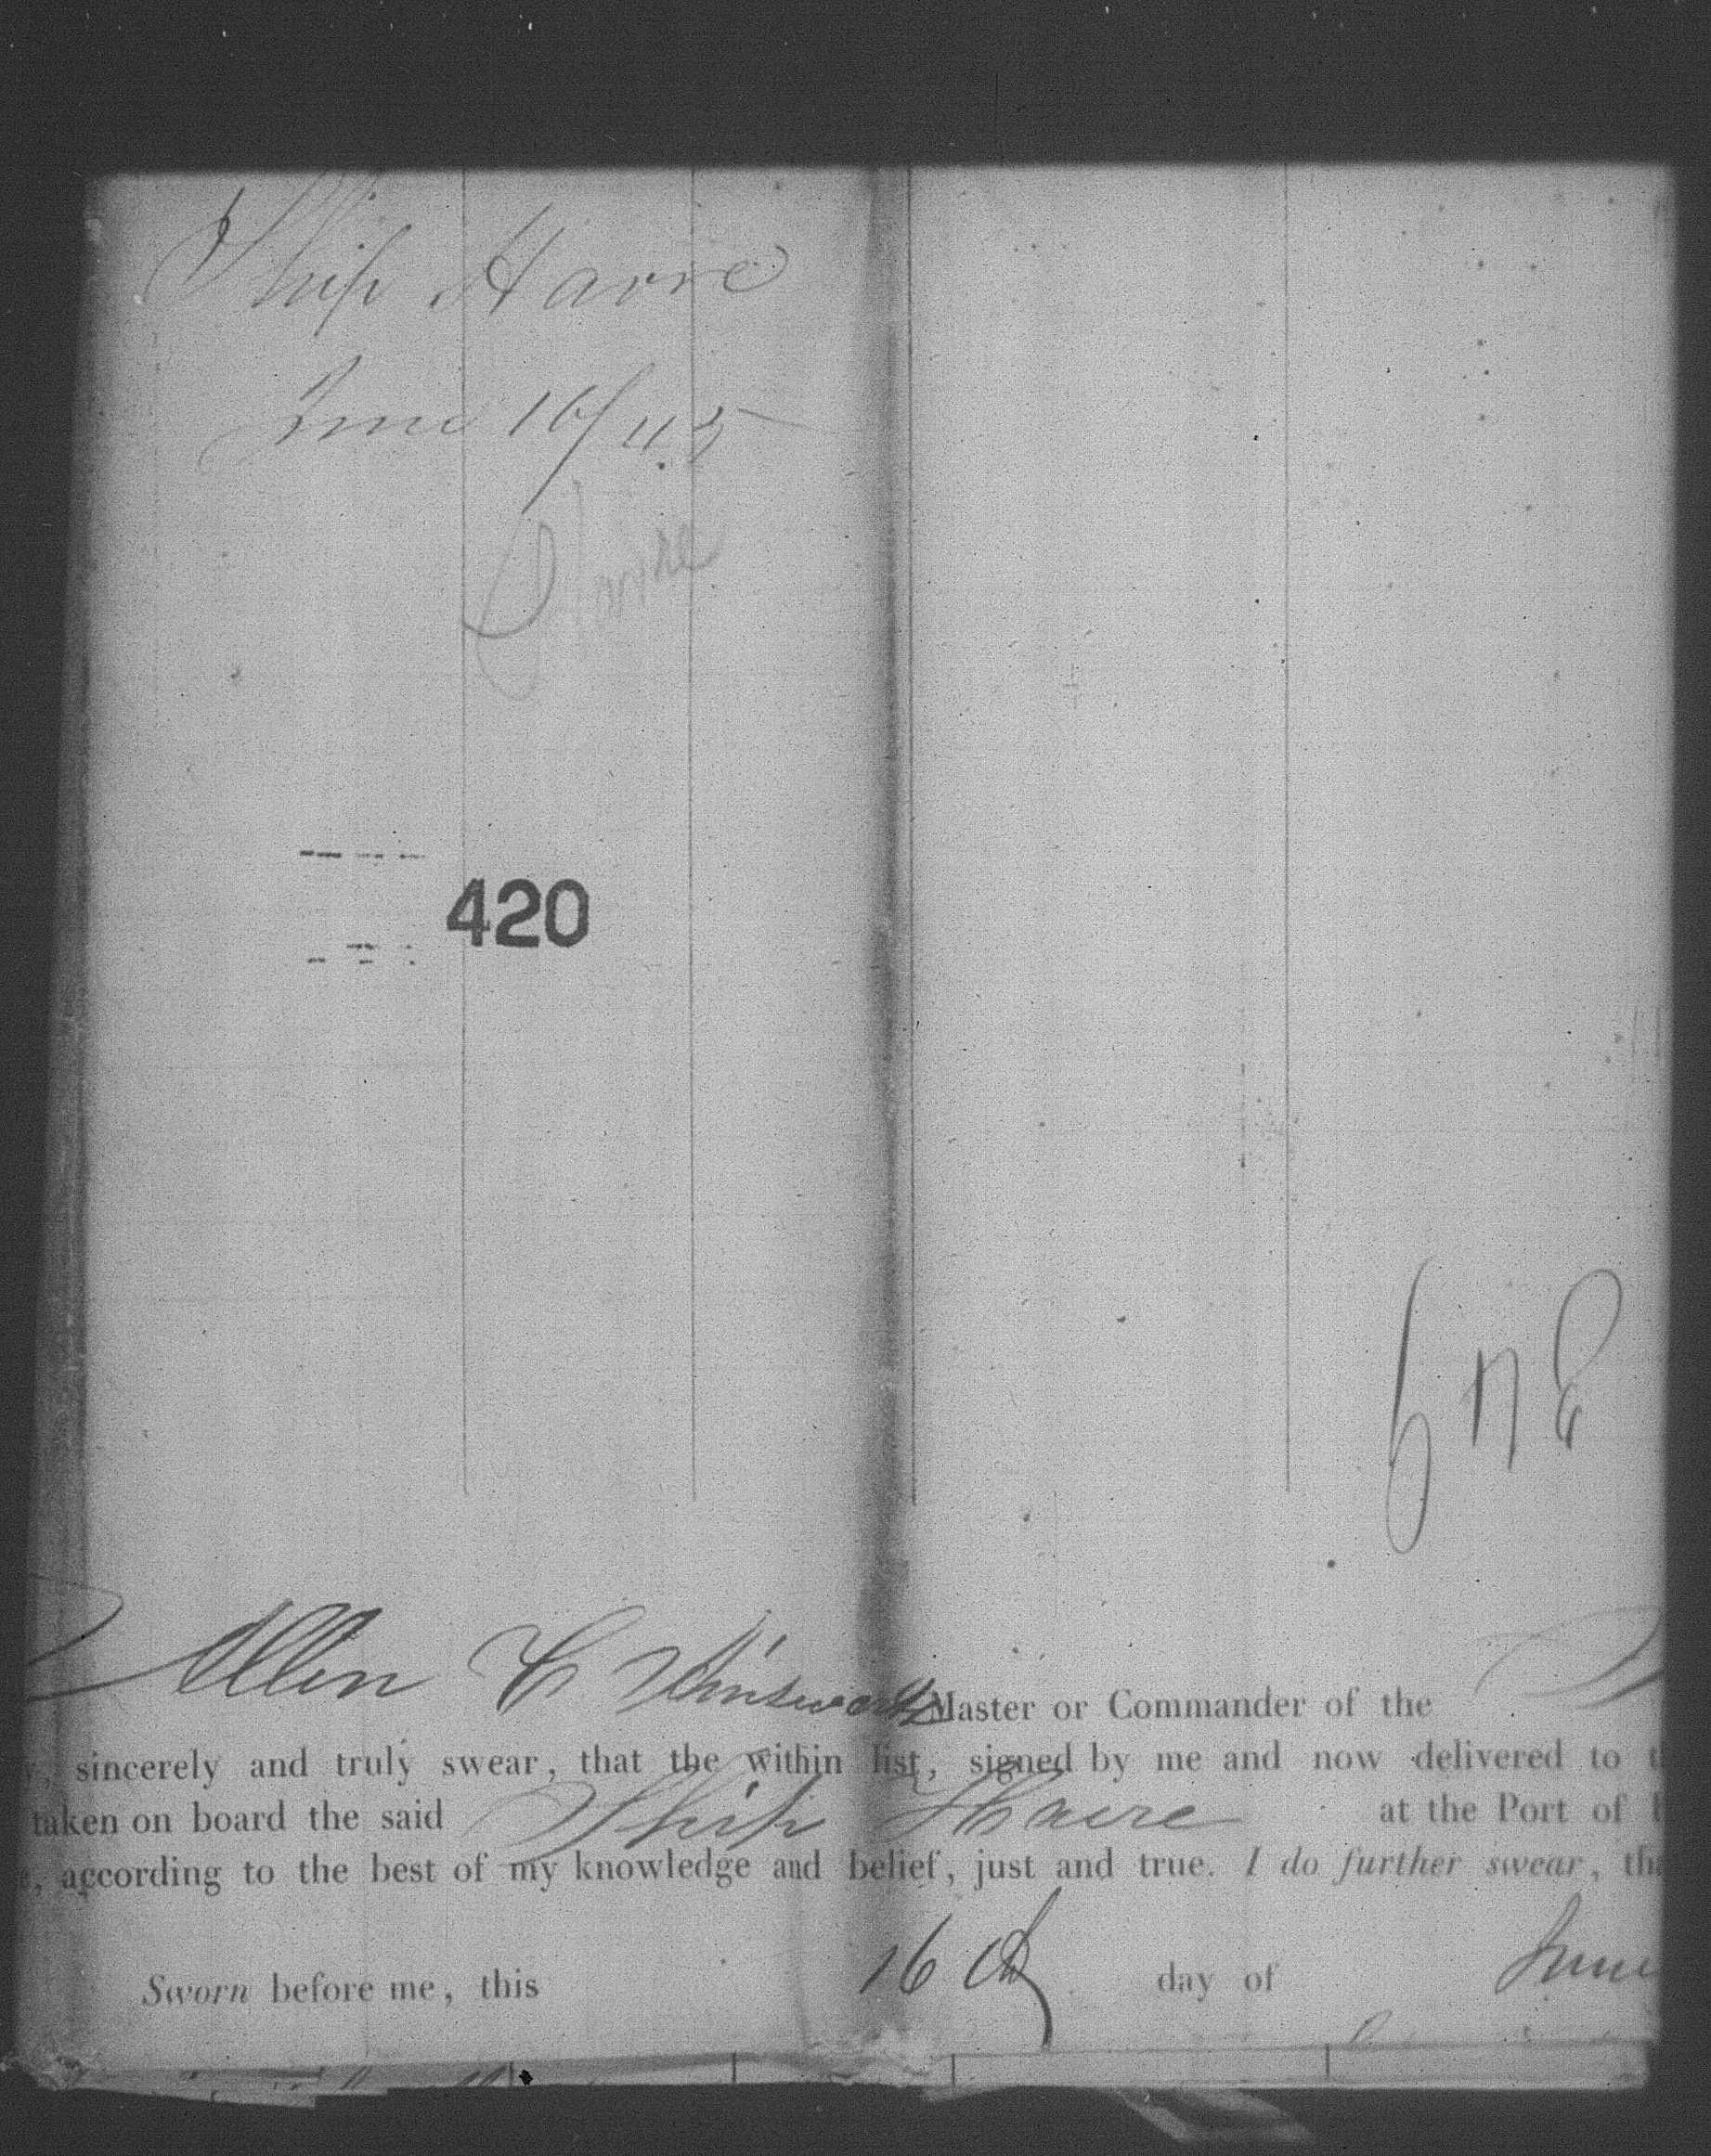 Ship Havre
June 16/45
Havre
420
Allen C Ainsworth Master or Commander of the
y, sincerely and truly swear, that the within list, signed by me and now delivered to t
taken on board the said Ship Havre at the Port of
e, according to the best of my knowledge and belief, just and true. I do further swear, th
Sworn before me, this 16th day of June